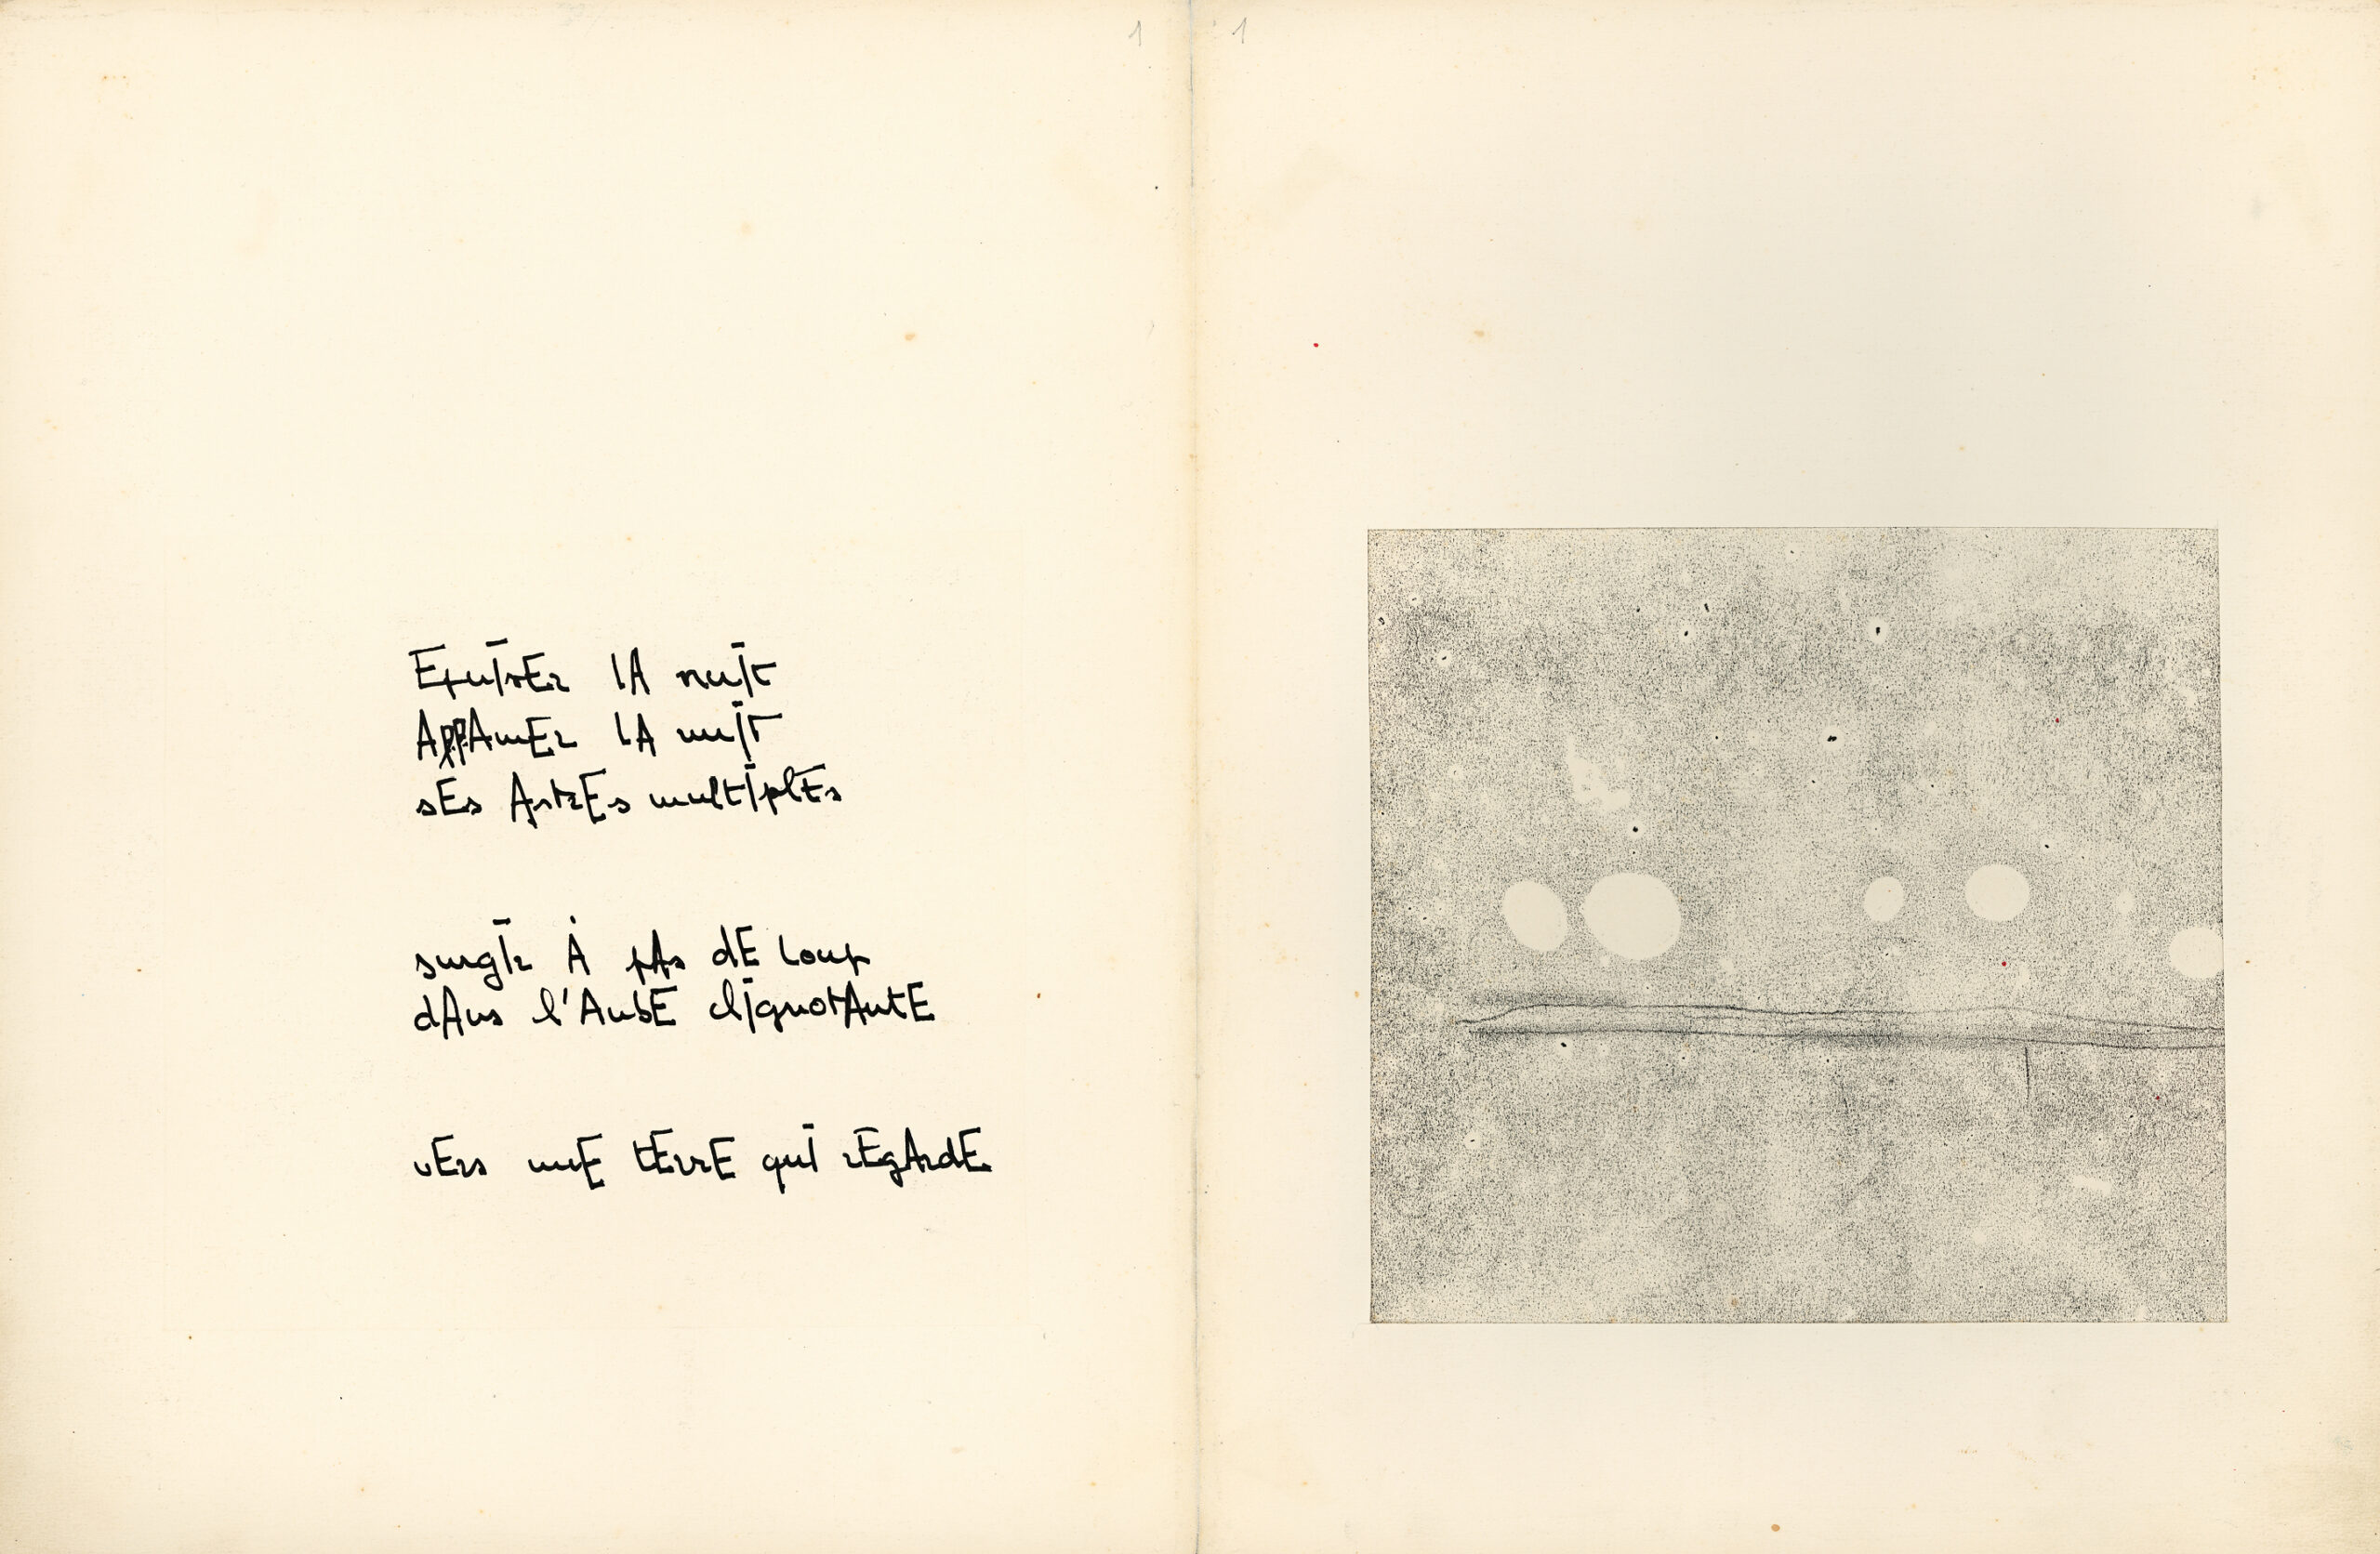 1 1
Epuiser la nuit
Affamer la nuit
ses Astres multiples
surgir à pas de loup
dans l'Aube clignotante
vers une terre qui regarde